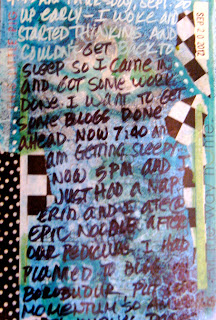 THURSDAY, SEPT. 20
UP EARLY - I WOKE AND
STARTED THINKING AND
COULDN'T BACK TO
GET
SLEEP SO I CAME IN
AND GOT SOME WORK
DONE. I WANT TO GET
SOME BLOGS DONE
AHEAD. NOW 7:40 AND
AM GETTING SLEEPY.
NOW 5PM AND I
JUST HAD A NAP.
ERIN AND I ATE @
EPIC NOODLE AFTER
OUR PEDICURE. I HAD
PLANNED TO BLOG ON
BOROBUDUR. PUT
MOMENTUM SO AM
SEP 20 2012